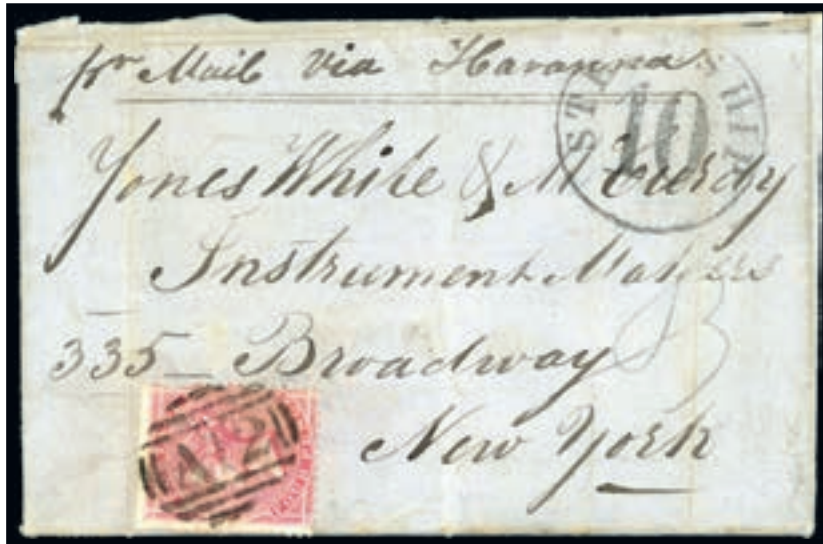 pr Mail via Havanna
STEAMSHIP
10
Jones White & McCurdy
Instrument Makers
335 Broadway
New York
A12